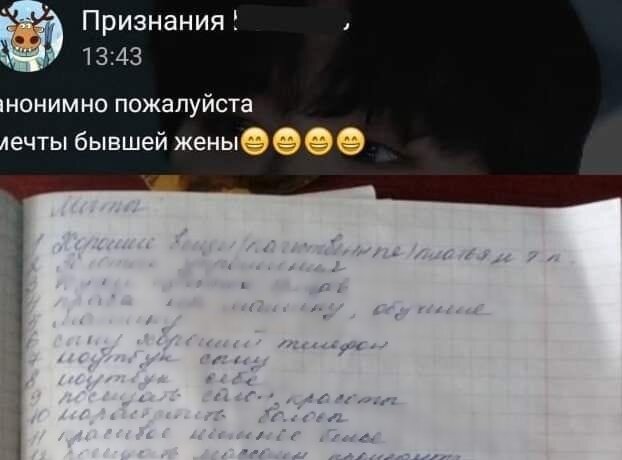 Признания
13:43
анонимно пожалуйста
мечты бывшей жены😄😄😄😄
Мечты
1 Хорошие вещи (качественные) платья и т.п.
2
3
4 права на машину, обучение
5 Машину
6 сыну хороший телефон
7 ноутбук сыну
8 ноутбук себе
9 посещать салон красоты
10 нарастить волосы
11 красивое нижнее белье
12 посещать